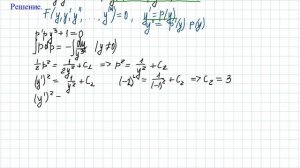 Решение.
F(y, y', y'', ..., y⁽ⁿ⁾) = 0, y' = p(y) y'' = p'(y) p(y).
p'p y³ + 1 = 0
∫p dp = -∫dy/y³ (y ≠ 0)
1/2 p² = 1/2y² + C₂ => p² = 1/y² + C₂
(y')² = 1/y² + C₂ (-2)² = 1/(-1)² + C₂ => C₂ = 3
(y')² =